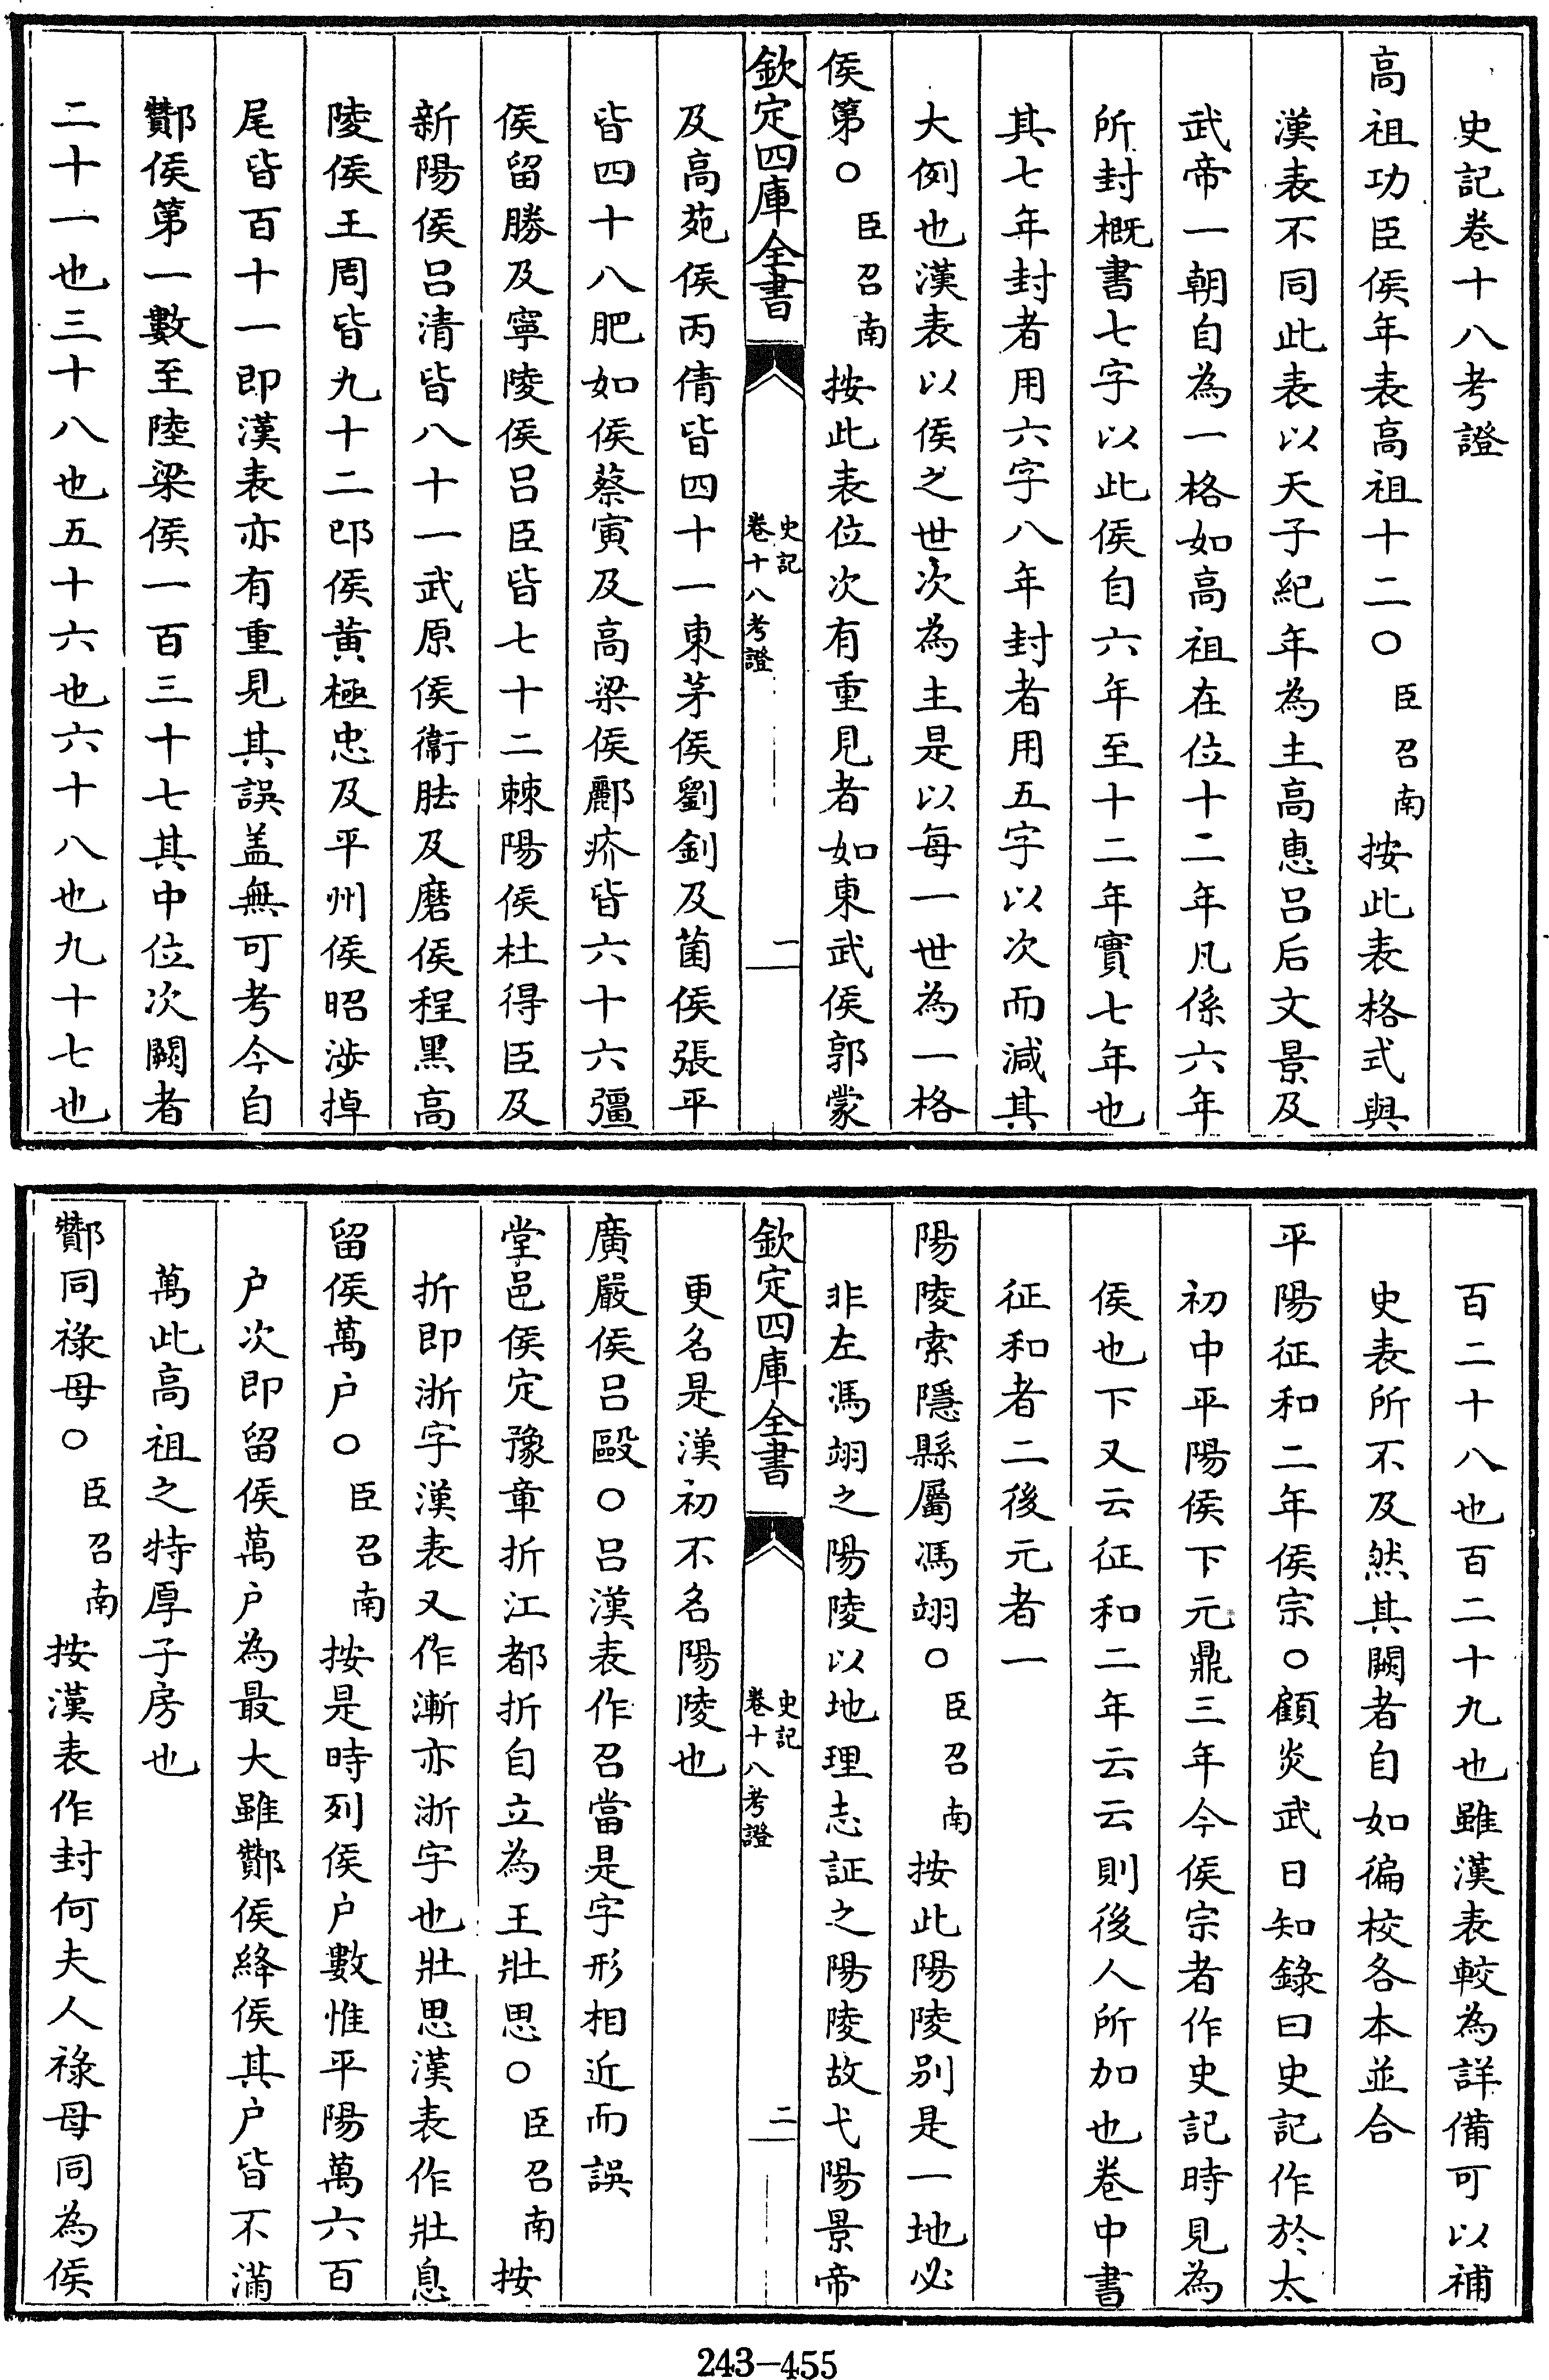 史記卷十八考證
高祖功臣侯年表高祖十二○臣召南按此表格式與
漢表不同此表以天子紀年為主高惠吕后文景及
武帝一朝自為一格如高祖在位十二年凡係六年
所封概書七字以此侯自六年至十二年實七年也
其七年封者用六字八年封者用五字以次而減其
大例也漢表以侯之世次為主是以每一世為一格
侯第○臣召南按此表位次有重見者如東武侯郭蒙
欽定四庫全書
史記
卷十八考證
一
及高苑侯丙倩皆四十一東茅侯劉釗及菌侯張平
皆四十八肥如侯蔡寅及高梁侯酈疥皆六十六彊
侯留勝及寧陵侯吕臣皆七十二棘陽侯杜得臣及
新陽侯吕清皆八十一武原侯衞胠及磨侯程黑高
陵侯王周皆九十二邔侯黄極忠及平州侯昭涉掉
尾皆百十一即漢表亦有重見其誤盖無可考今自
酇侯第一數至陸梁侯一百三十七其中位次闕者
二十一也三十八也五十六也六十八也九十七也
百二十八也百二十九也雖漢表較為詳備可以補
史表所不及然其闕者自如徧校各本並合
平陽征和二年侯宗○顧炎武日知錄曰史記作於太
初中平陽侯下元鼎三年今侯宗者作史記時見為
侯也下又云征和二年云云則後人所加也卷中書
征和者二後元者一
陽陵索隱縣屬馮翊○臣召南按此陽陵別是一地必
非左馮翊之陽陵以地理志証之陽陵故弋陽景帝
欽定四庫全書
史記
卷十八考證
二
更名是漢初不名陽陵也
廣嚴侯吕毆○吕漢表作召當是字形相近而誤
堂邑侯定豫章折江都折自立為王壯思○臣召南按
折即浙字漢表又作漸亦浙字也壯思漢表作壯息
留侯萬户○臣召南按是時列侯户數惟平陽萬六百
户次即留侯萬户為最大雖酇侯絳侯其户皆不滿
萬此高祖之特厚子房也
酇同祿母○臣召南按漢表作封何夫人祿母同為侯
243-455